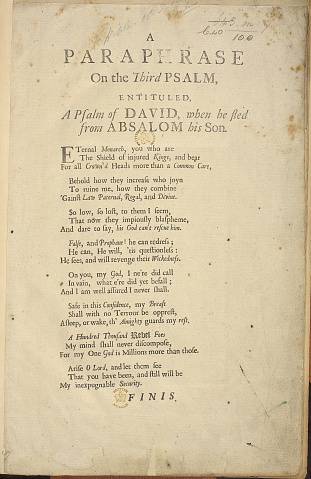 A
PARAPHRASE
On the Third PSALM,
ENTITULED,
A Psalm of DAVID, when he fled
from ABSALOM his Son.
ETernal Monarch, you who are
The Shield of injured Kings, and bear
For all Crown'd Heads more than a Common Care,
Behold how they increase who joyn
To ruine me, how they combine
'Gainst Law Paternal, Regal, and Divine.
So low, so lost, to them I seem,
That now they impiously blaspheme,
And dare to say, his God can't rescue him.
False, and Prophane! he can redress;
He can, He will, 'tis questionless:
He sees, and will revenge their Wickedness.
On you, my God, I ne're did call
In vain, what e're did yet befall;
And I am well assured I never shall.
Safe in this Confidence, my Breast
Shall with no Terrour be opprest,
Asleep, or wake, th' Almighty guards my rest.
A Hundred Thousand Rebel Foes
My mind shall never discompose,
For my One God is Millions more than those.
Arise O Lord, and let them see
That you have been, and still will be
My inexpugnable Security.
FINIS.